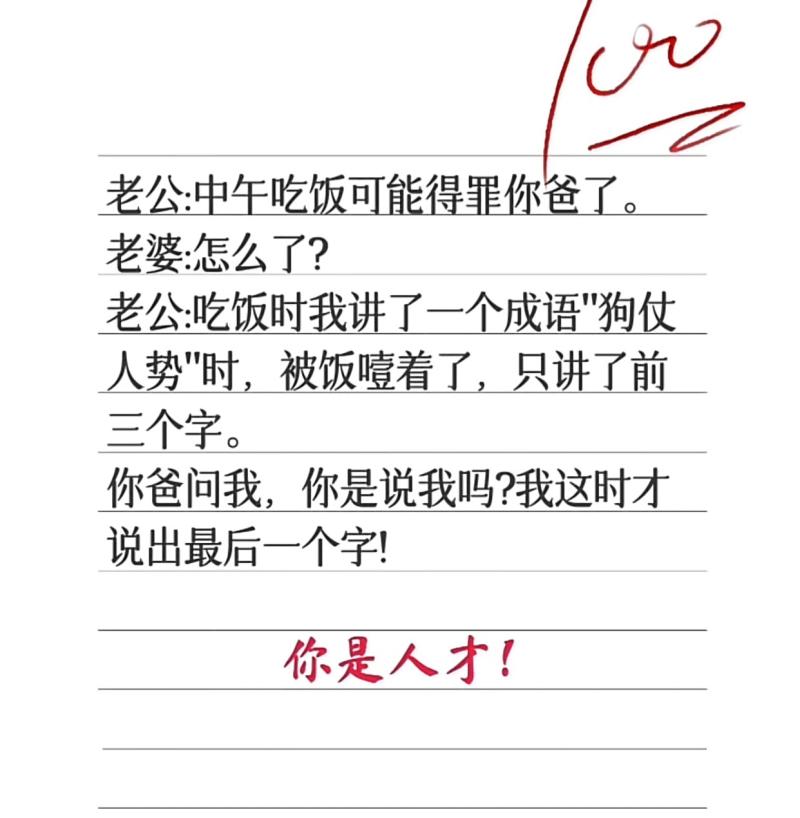 100
老公:中午吃饭可能得罪你爸了。
老婆:怎么了?
老公:吃饭时我讲了一个成语"狗仗
人势"时，被饭噎着了，只讲了前
三个字。
你爸问我，你是说我吗?我这时才
说出最后一个字!
你是人才!